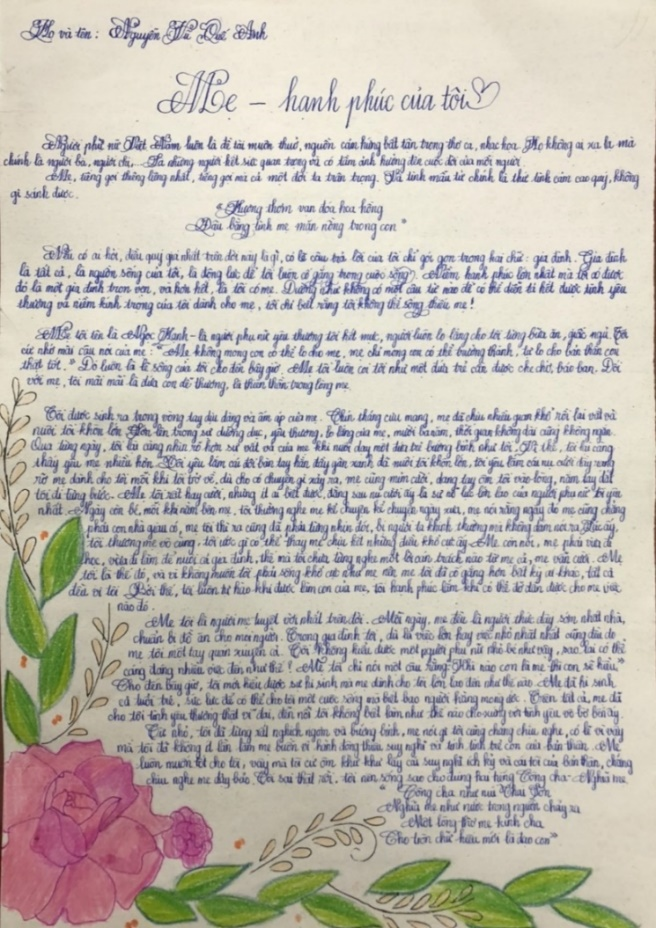 Họ và tên: Nguyễn Vũ Quế Anh
Mẹ – hạnh phúc của tôi
Người phụ nữ Việt Nam luôn là đề tài muôn thuở, nguồn cảm hứng bất tận trong thơ ca, nhạc họa. Họ không ai xa lạ mà
chính là người bà, người chị,... Là những người hết sức quan trọng và có tầm ảnh hưởng đến cuộc đời của mỗi người.
Mẹ, tiếng gọi thiêng liêng nhất, tiếng gọi mà cả một đời ta trân trọng. Và tình mẫu tử chính là thứ tình cảm cao quý, không
gì sánh được.
"Hương thơm vạn đóa hoa hồng
Đâu bằng tình mẹ mặn nồng trong con"
Nếu có ai hỏi, điều quý giá nhất trên đời này là gì, có lẽ câu trả lời của tôi chỉ gói gọn trong hai chữ: gia đình. Gia đình
là tất cả, là nguồn sống của tôi, là động lực để tôi luôn cố gắng trong cuộc sống. Niềm hạnh phúc lớn nhất mà tôi có được
đó là một gia đình trọn vẹn, và hơn hết, là tôi có mẹ. Dường như không có một câu từ nào để có thể diễn tả hết được tình yêu
thương và niềm kính trọng của tôi dành cho mẹ, tôi chỉ biết rằng tôi không thể sống thiếu mẹ!
Mẹ tôi tên là Ngọc Hạnh - là người phụ nữ yêu thương tôi hết mực, người luôn lo lắng cho tôi từng bữa ăn, giấc ngủ. Tôi
cứ nhớ mãi câu nói của mẹ: "Mẹ không mong con có thể lo cho mẹ, mẹ chỉ mong con có thể trưởng thành, tự lo cho bản thân con
thật tốt." Đó luôn là lẽ sống của tôi cho đến bây giờ. Mẹ tôi luôn coi tôi như một đứa trẻ cần được che chở, bảo ban. Đối
với mẹ, tôi mãi mãi là đứa con dễ thương, là thiên thần trong lòng mẹ.
Tôi được sinh ra trong vòng tay dịu dàng và ấm áp của mẹ. Chín tháng cưu mang, mẹ đã chịu nhiều gian khổ rồi lại vất vả
nuôi tôi khôn lớn. Lớn lên trong sự dưỡng dục, yêu thương, lo lắng của mẹ, mười ba năm, thời gian không dài cũng không ngắn.
Qua từng ngày, tôi lại càng nhìn rõ hơn sự vất vả của mẹ khi nuôi dạy một đứa trẻ bướng bỉnh như tôi. Vì thế, tôi lại càng
thấy yêu mẹ nhiều hơn. Tôi yêu lắm cái đôi bàn tay hằn đầy gân xanh đã nuôi tôi khôn lớn, tôi yêu lắm cái nụ cười đầy rạng
rỡ mẹ dành cho tôi mỗi khi tôi trở về, dù cho có chuyện gì xảy ra, mẹ cũng mỉm cười, dang tay ôm tôi vào lòng, nắm lấy tay
tôi đi từng bước. Mẹ tôi rất hay cười, nhưng ít ai biết được, đằng sau nụ cười ấy là sự nỗ lực lớn lao của người phụ nữ tôi yêu
nhất. Ngày còn bé, mỗi khi nằm bên mẹ, tôi thường nghe mẹ kể chuyện kể chuyện ngày xưa, mẹ nói rằng ngày đó mẹ cũng chẳng
phải con nhà giàu có, mẹ tôi thi ra cũng đã phải từng nhịn đói, bị người ta khinh thường mà không dám nói ra. Lúc ấy,
tôi thương mẹ vô cùng, tôi ước gì có thể thay mẹ chịu hết những điều khổ cực ấy. Mẹ còn nói, mẹ phải vừa đi
học, vừa đi làm để nuôi cả gia đình, thế mà tôi chưa từng nghe một lời oán trách nào từ mẹ cả, mẹ vẫn cười. Mẹ
tôi là thế đó, và vì không muốn tôi phải sống khổ cực như mẹ nữa, mẹ tôi đã cố gắng hơn bất kỳ ai khác, tất cả
đều vì tôi. Bởi thế, tôi luôn tự hào khi được làm con của mẹ, tôi hạnh phúc lắm khi có thể đỡ đần được cho mẹ việc
nào đó.
Mẹ tôi là người mẹ tuyệt vời nhất trên đời. Mỗi ngày, mẹ đều là người thức dậy sớm nhất nhà,
chuẩn bị đồ ăn cho mọi người. Trong gia đình tôi, dù là việc lớn hay việc nhỏ nhất nhất cũng đều do
mẹ tôi một tay quán xuyến cả. Tôi không hiểu được một người phụ nữ nhỏ bé như vậy, sao lại có thể
cáng đáng nhiều việc đến như thế! Mẹ tôi chỉ nói một câu rằng: "Khi nào con là mẹ thì con sẽ hiểu."
Cho đến bây giờ, tôi mới hiểu được sự hi sinh mà mẹ dành cho tôi lớn lao đến như thế nào. Mẹ đã hi sinh
cả tuổi trẻ, sức lực để có thể cho tôi một cuộc sống mà biết bao người hằng mong ước. Trên tất cả, mẹ đã
cho tôi tình yêu thương thật vĩ đại, đến nỗi tôi không biết làm như thế nào cho xứng với tình yêu vô bờ bến ấy.
Từ nhỏ, tôi đã từng rất nghịch ngợm và bướng bỉnh, mẹ nói gì tôi cũng chẳng chịu nghe, có lẽ vì vậy
mà tôi đã không ít lần làm mẹ buồn vì hành động thiếu suy nghĩ và tính tình trẻ con của bản thân. Mẹ
luôn muốn tốt cho tôi, vậy mà tôi cứ ôm khư khư lấy cái suy nghĩ ích kỷ và cái tôi của bản thân, chẳng
chịu nghe mẹ dạy bảo. Tôi sai thật rồi, tôi nên sống sao cho đúng hai tiếng Công cha - Nghĩa mẹ.
"Công cha như núi Thái Sơn
Nghĩa mẹ như nước trong nguồn chảy ra
Một lòng thờ mẹ kính cha
Cho tròn chữ hiếu mới là đạo con"